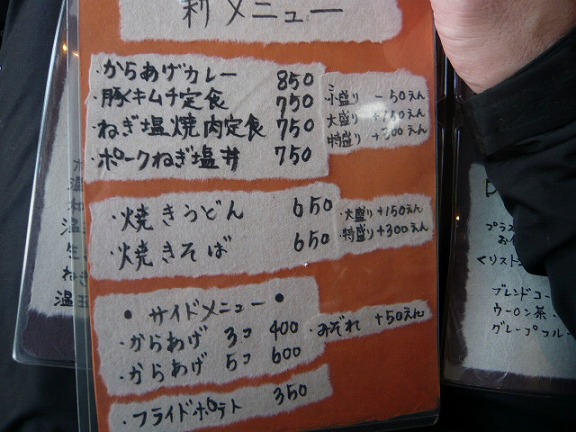 新メニュー
・からあげカレー 850
・豚キムチ定食 750
・ねぎ塩焼肉定食 750
・ポークねぎ塩丼 750
小盛り -50えん
大盛り +100えん
特盛り +300えん
・焼きうどん 650
・焼きそば 650
・大盛り +150えん
・特盛り +300えん
• サイドメニュー •
・からあげ 3コ 400
・からあげ 5コ 600
・みぞれ +50えん
・フライドポテト 350
プラス
くリスト
ブレンドコー
ウーロン茶・
グレープフルー